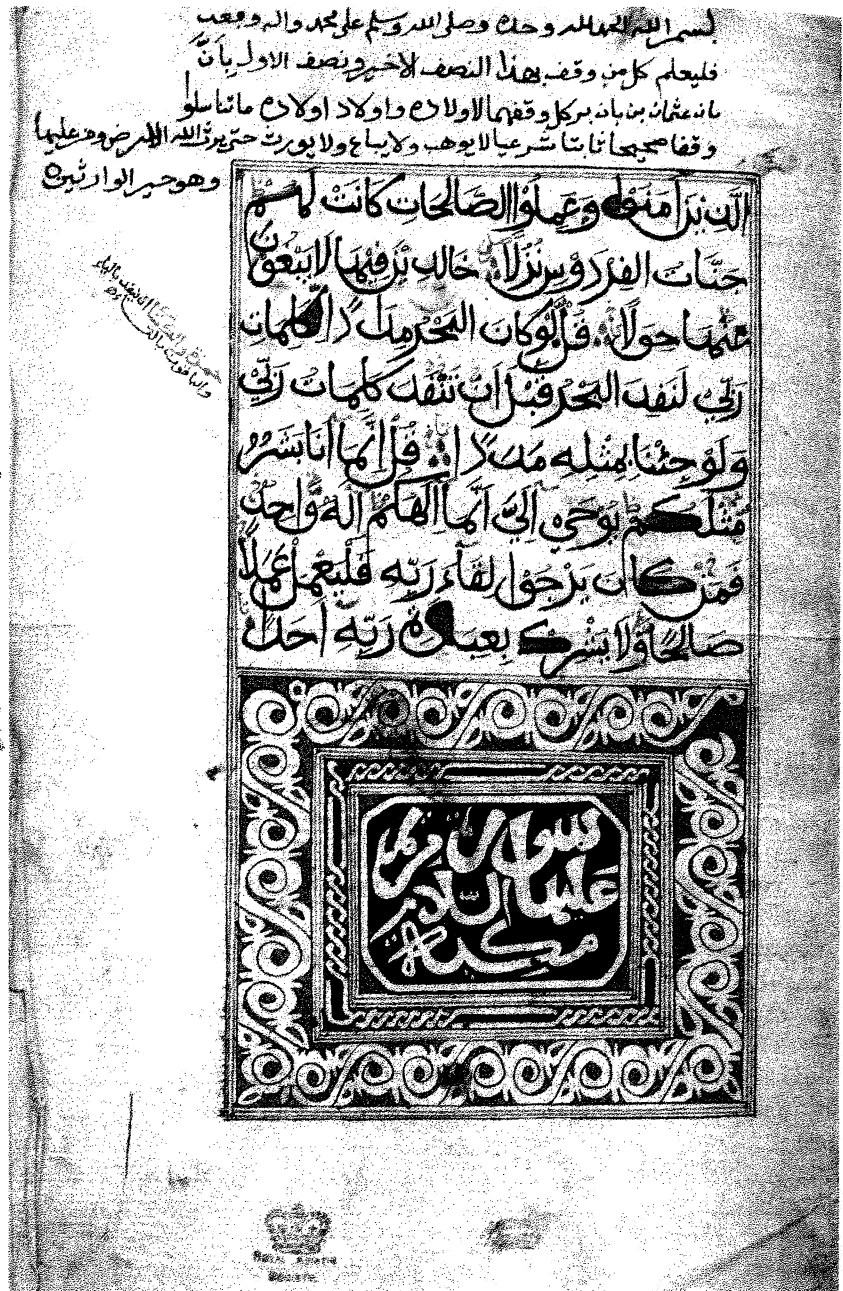 بسم الله الحمد لله وحده وصلى الله وسلم على محمد واله وبعد
فليعلم كل من وقف بهذا النصف الاخير ونصف الاول بأنّ
بانه عثمان بن بانه بن كل وقفهما لاولاده واولاد اولاده ما تناسلوا
وقفا صحيحا ثابتا شرعيا لا يوهب ولا يباع ولا يورث حتى يرث الله الارض ومن عليها
وهو خير الوارثين
الَّذِينَ آمَنُوا وَعَمِلُوا الصَّالِحَاتِ كَانَتْ لَهُمْ
جَنَّاتُ الْفِرْدَوْسِ نُزُلًا خَالِدِينَ فِيهَا لَا يَبْغُونَ
عَنْهَا حِوَلًا قُلْ لَوْ كَانَ الْبَحْرُ مِدَادًا لِكَلِمَاتِ
رَبِّي لَنَفِدَ الْبَحْرُ قَبْلَ أَنْ تَنْفَدَ كَلِمَاتُ رَبِّي
وَلَوْ جِئْنَا بِمِثْلِهِ مَدَدًا قُلْ إِنَّمَا أَنَا بَشَرٌ
مِثْلُكُمْ يُوحَى إِلَيَّ أَنَّمَا إِلَهُكُمْ إِلَهٌ وَاحِدٌ
فَمَنْ كَانَ يَرْجُوا لِقَاءَ رَبِّهِ فَلْيَعْمَلْ عَمَلًا
صَالِحًا وَلَا يُشْرِكْ بِعِبَادَةِ رَبِّهِ أَحَدًا
سورة مريم
عليها السلام
مكية
Royal Asiatic
Society